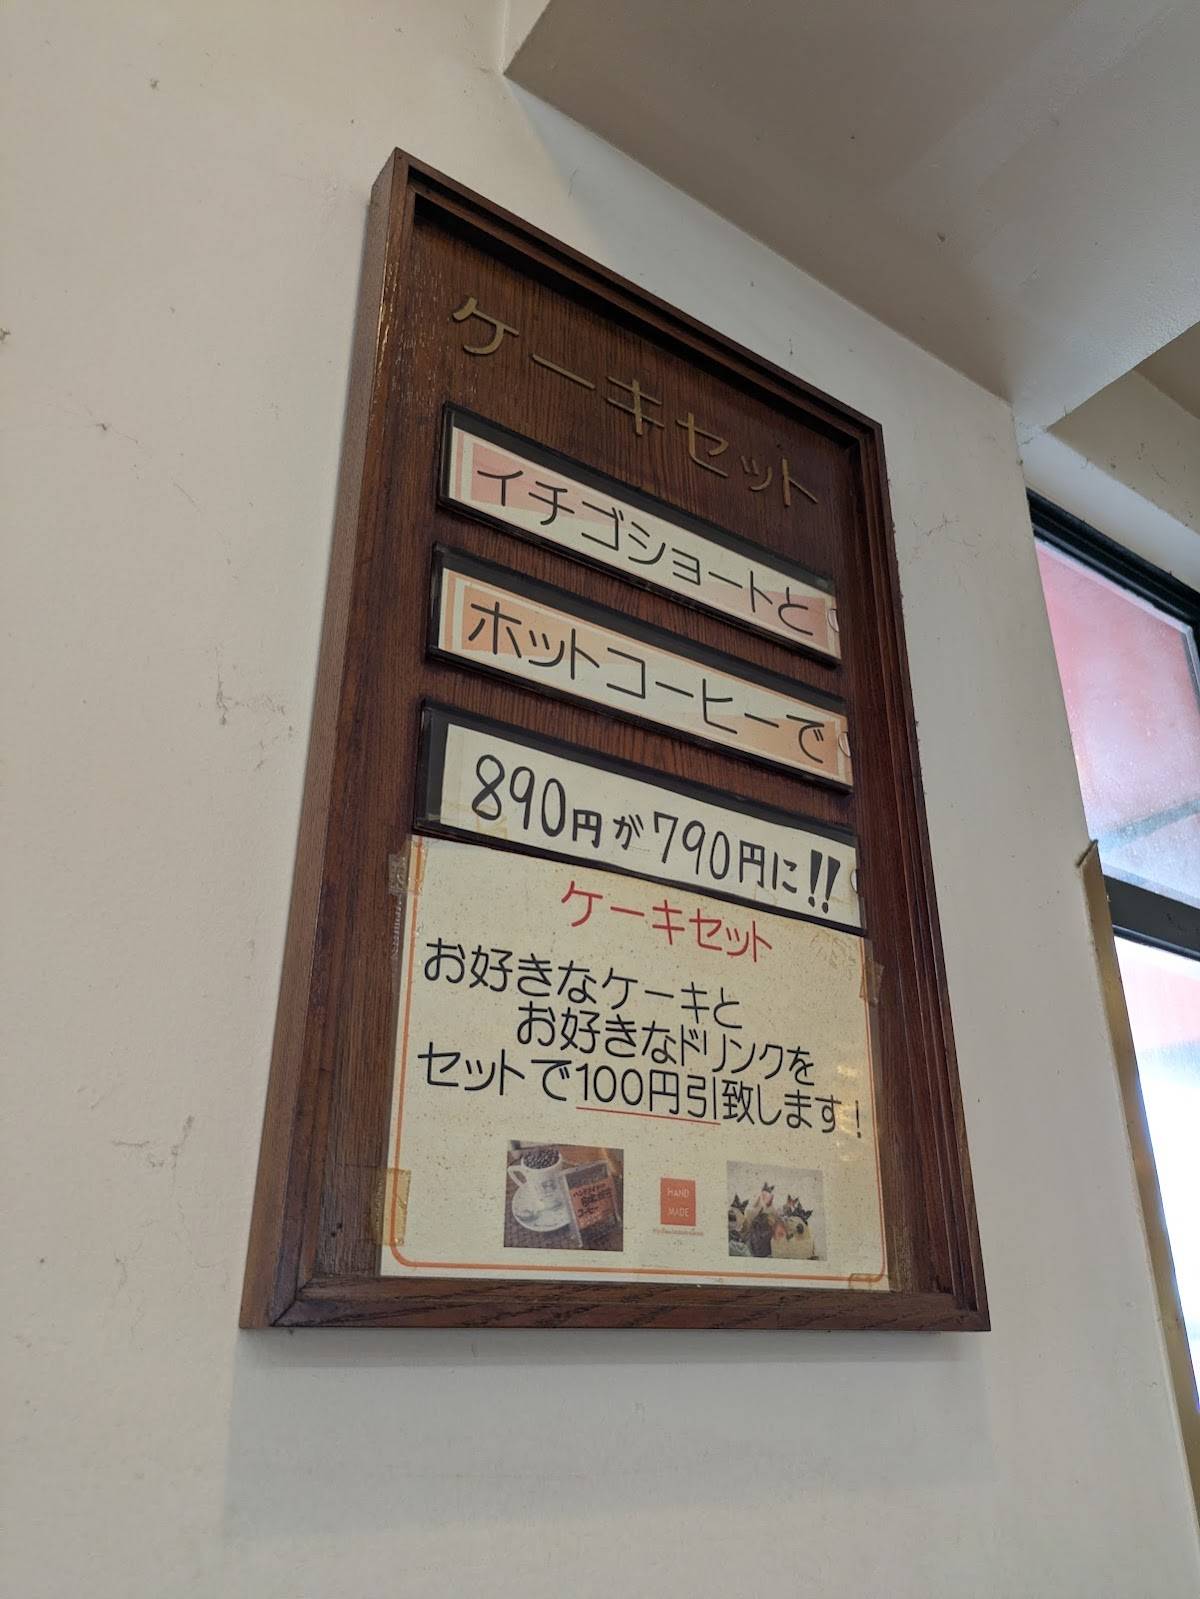 ケーキセット
イチゴショートと
ホットコーヒーで
890円が790円に!!
ケーキセット
お好きなケーキと
お好きなドリンクを
セットで100円引致します!
コーヒー
HAND
MADE